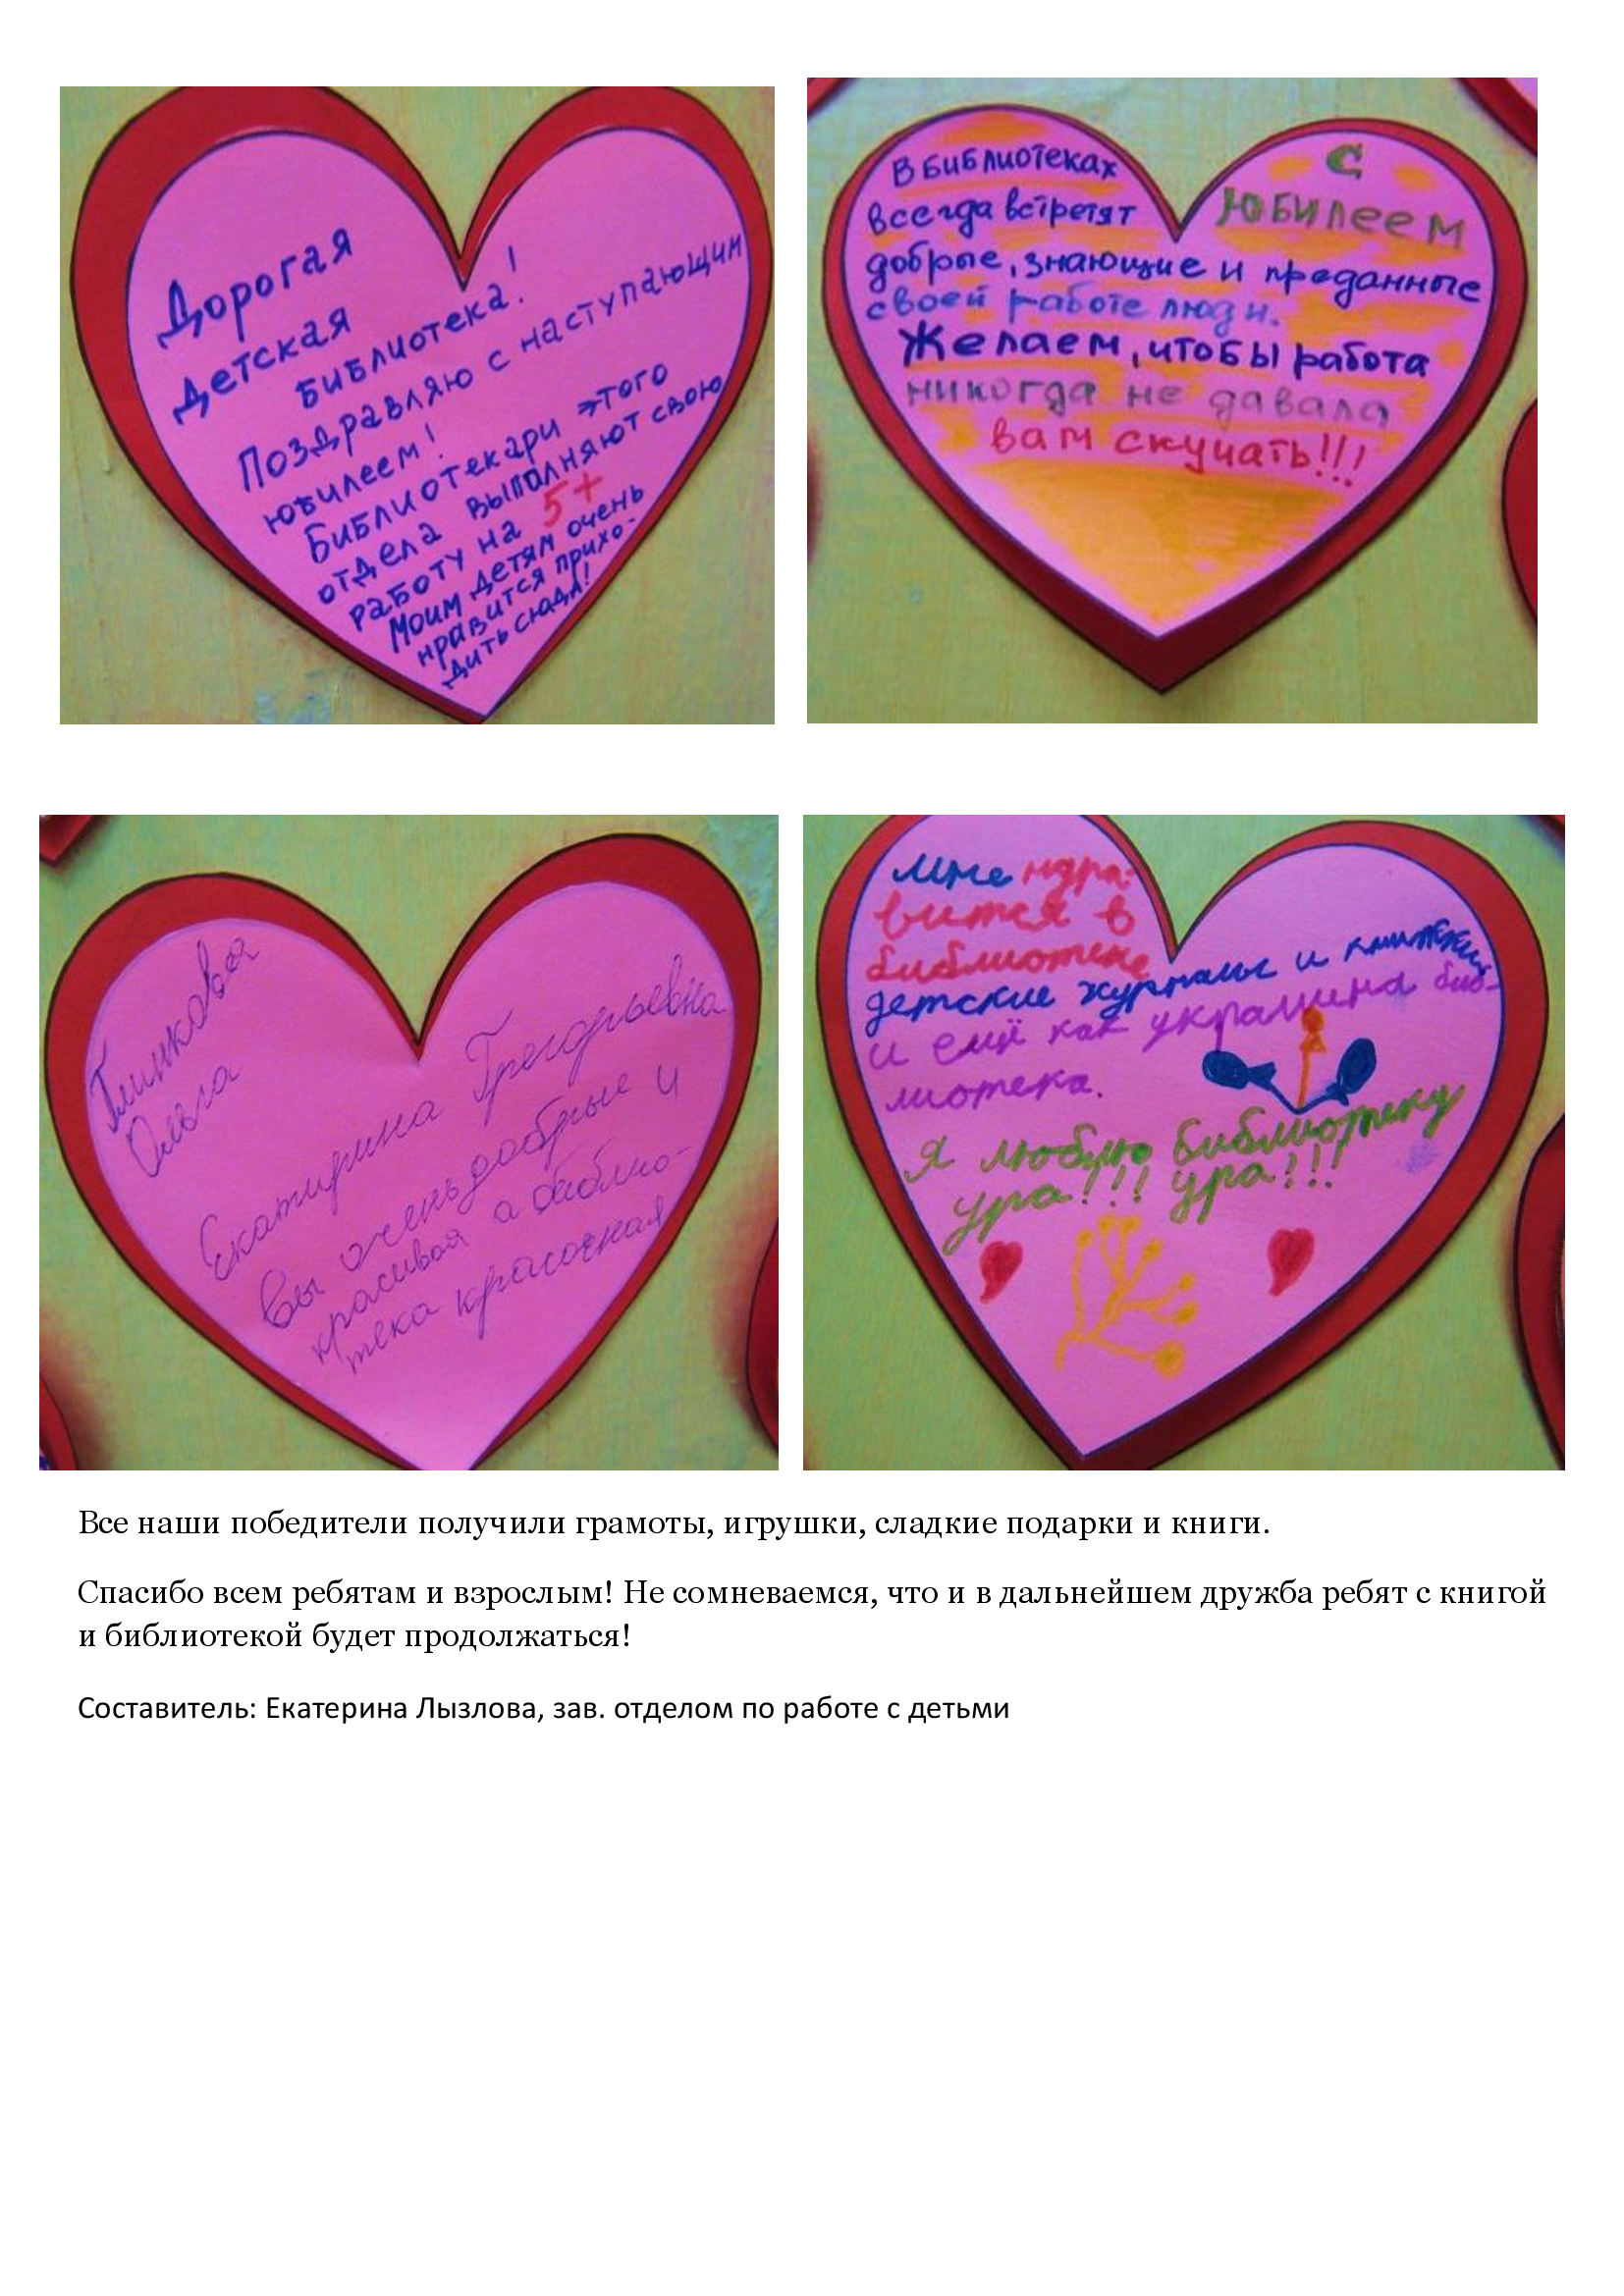 Дорогая
детская
библиотека!
Поздравляю с наступающим
юбилеем!
Библиотекари этого
отдела выполняют свою
работу на 5+
Моим детям очень
нравится прихо-
дить сюда!
С
ЮБИЛЕЕМ
В библиотеках
всегда встретят
добрые, знающие и преданные
своей работе люди.
Желаем, чтобы работа
никогда не давала
вам скучать!!!
Глинковая
Ольга
Екатирина Грегорьевна
Вы очень добрые и
красивая а библио-
тека красочная
Мне ндра-
вится в
библиотеке
детские журналы и книжки
и ещё как украшина биб-
лиотека.
Я люблю библиотеку
ура!!! ура!!!
Все наши победители получили грамоты, игрушки, сладкие подарки и книги.
Спасибо всем ребятам и взрослым! Не сомневаемся, что и в дальнейшем дружба ребят с книгой
и библиотекой будет продолжаться!
Составитель: Екатерина Лызлова, зав. отделом по работе с детьми